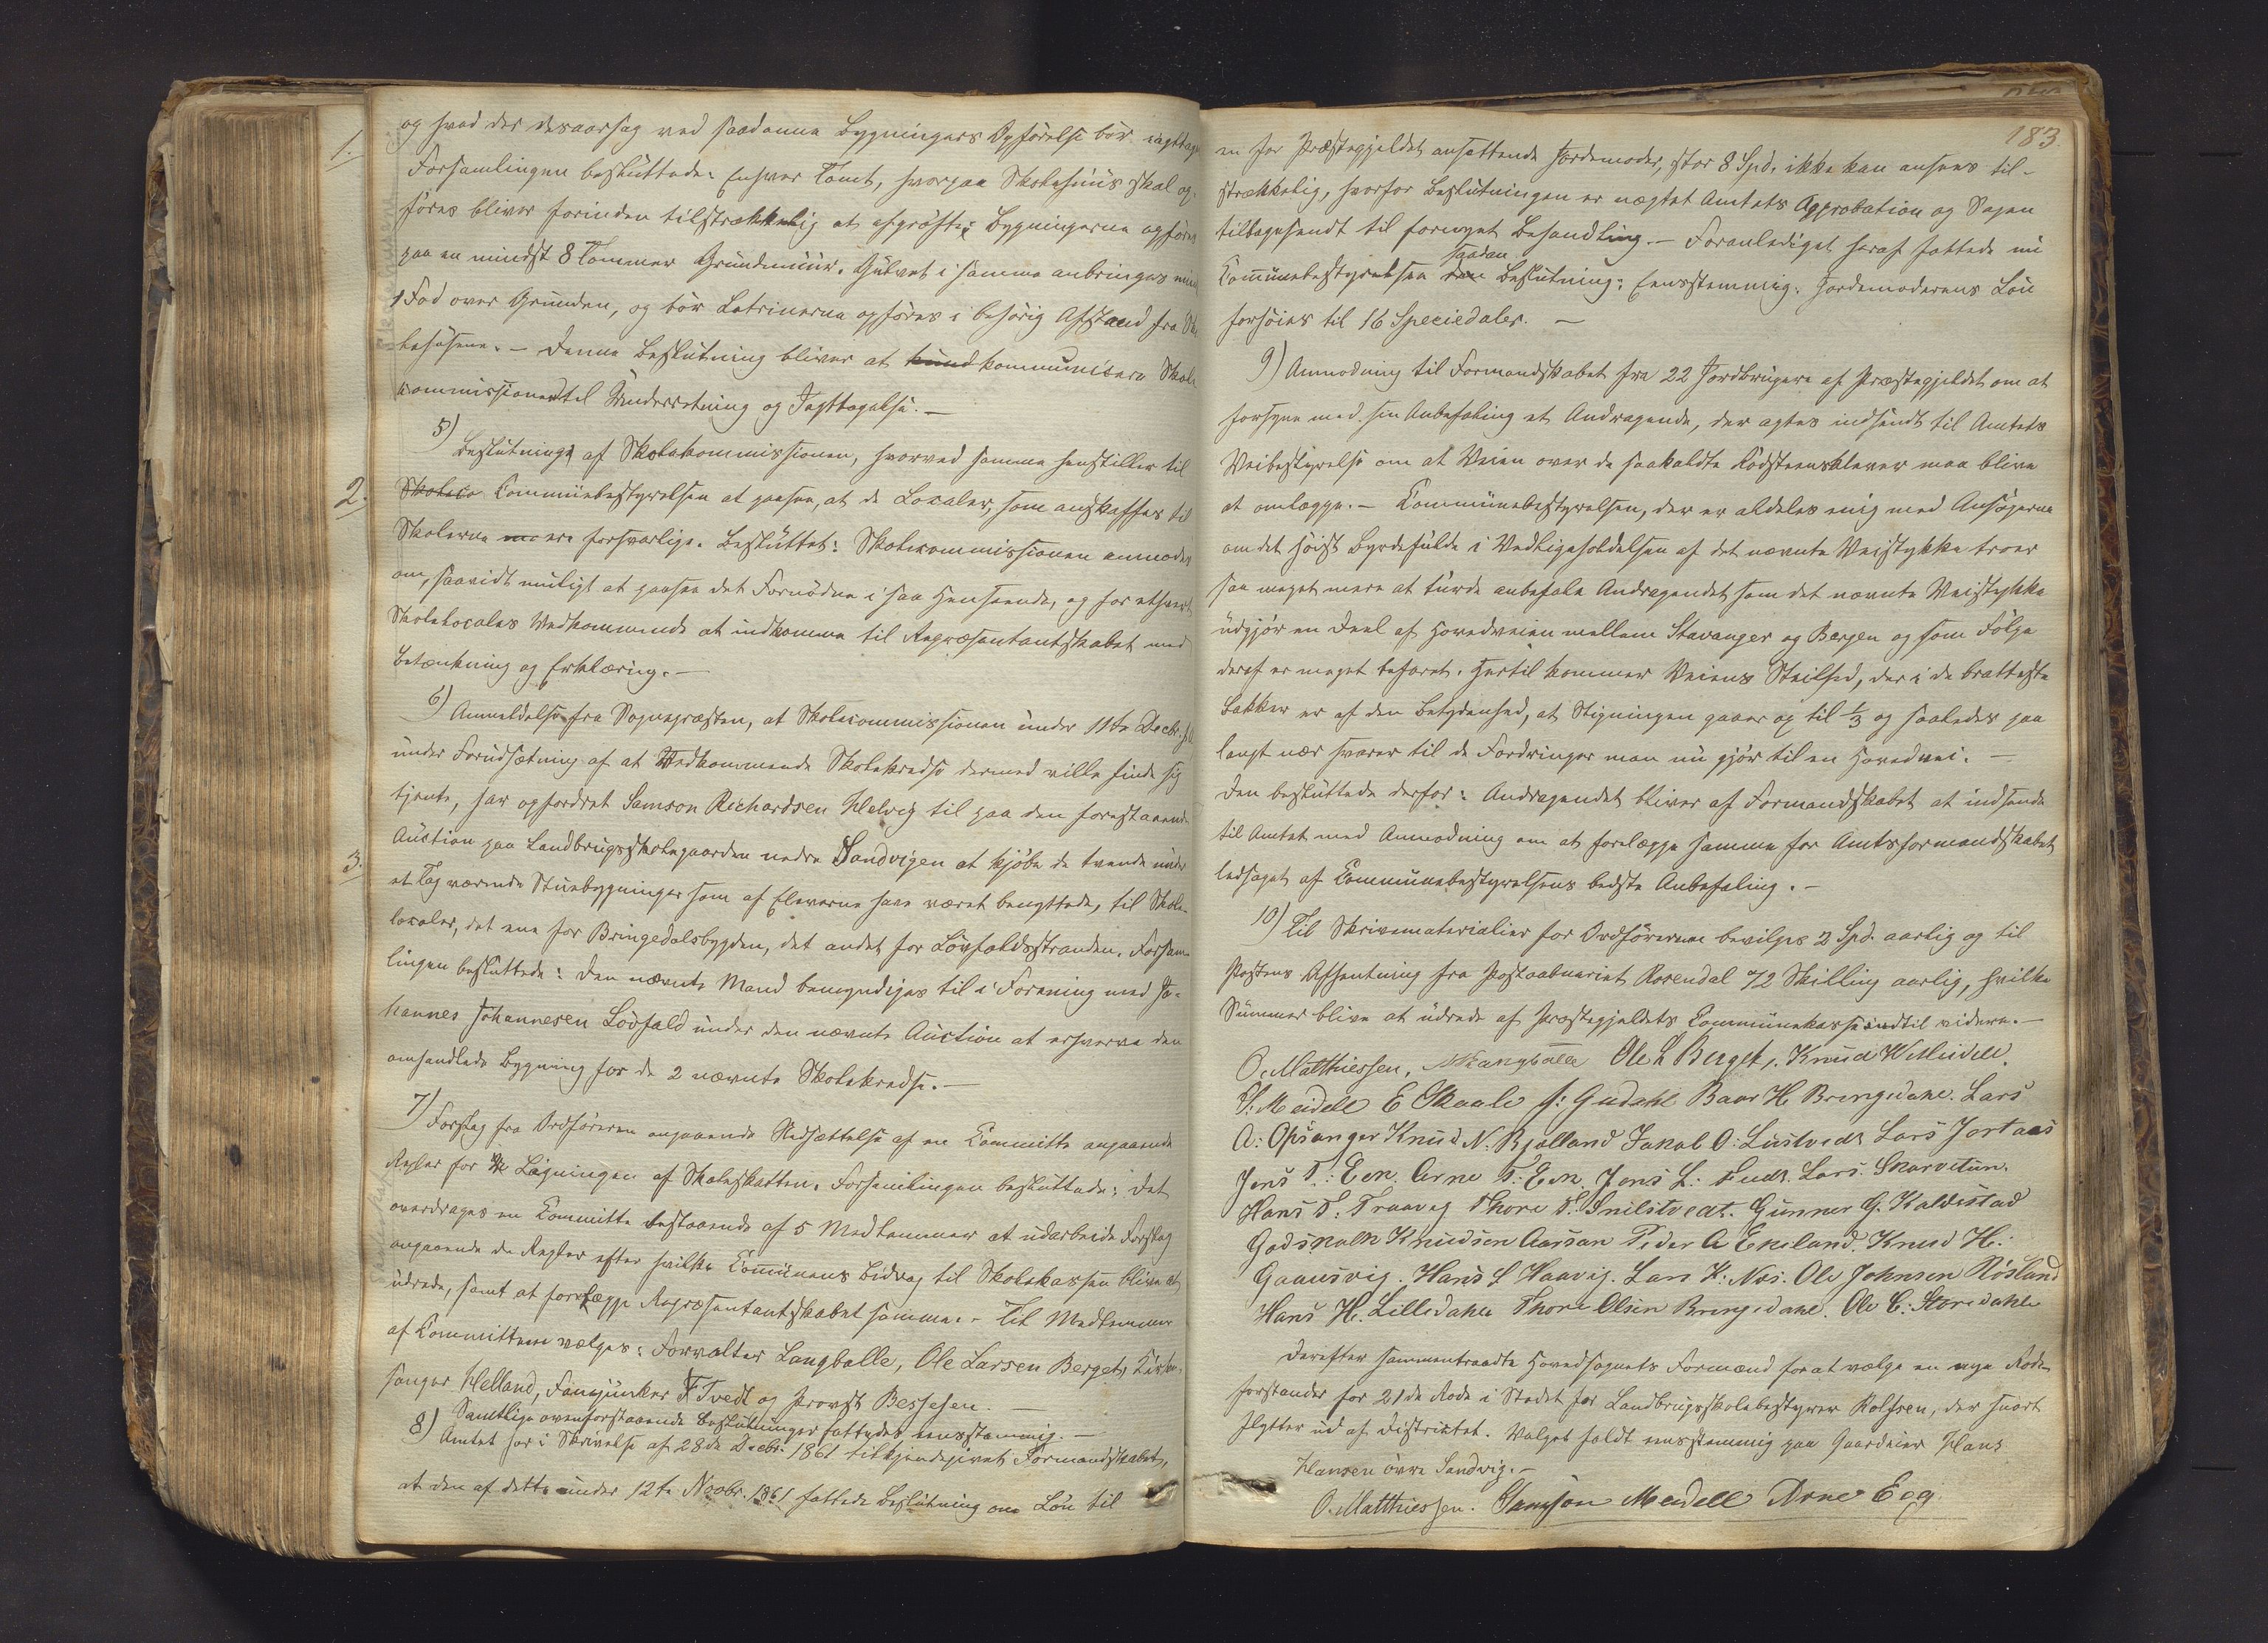 og hvad der desaarsag ved saadanne Bygningers Opførelse bør iagttages
Forsamlingen besluttede: Enhver Tomt, hvorpaa Skolehuus skal op-
føres bliver forinden tilstrækkelig at afgrøfte; Bygningerne opføres
paa en mindst 8 Tommer Grundmuur. Gulvet i samme anbringes mindst
1 Fod over Grunden, og bør Latrinerne opføres i behørig Afstand fra Sko-
lehusene. – Denne Beslutning bliver at kund kommunisere Skole
kommissionen til Underretning og Iagttagelse. –
5) Beslutning af Skolekommissionen, hvorved samme henstiller til
Skoleco Communebestyrelsen at paasee, at de Localer, som anskaffes til
Skolerne ere forsvarlige. Besluttet: Skolecommissionen anmodes
om, saavidt muligt at paasee det Fornødne i saa Henseende, og for ethvert
Skolelocales Vedkommende at indkomme til Repræsentantskabet med
Betænkning og Erklæring. –
6) Anmeldelse fra Sognepræsten, at Skolecommissionen under 11te Decbr.
under Forudsætning af at Vedkommende Skolekredse dermed ville finde sig
tjente, har opfordret Samson Richardsen Helvig til paa den forestaaende
Auction paa Landbrugsskolegaarden nedre Sandvigen at kjøbe de tvende under
et Tag værende Stuebygninger som af Eleverne have været benyttede, til Skole-
localer, det ene for Bringedalsbygden, det andet for Løvfaldsstranden. Forsam-
lingen besluttede: Den nævnte Mand bemyndiges til i Forening med Jo-
hannes Johannesen Løvfald under den nævnte Auction at erhverve den
omhandlede Bygning for de 2 nævnte Skolekredse. –
7) Forslag fra Ordføreren angaaende Nedsættelse af en Committe angaaende
Regler for Ligningen af Skoleskatten. Forsamlingen besluttede: Det
overdrages en Committe bestaaende af 5 Medlemmer at udarbeide Forslag
angaaende de Regler efter hvilke Communens Bidrag til Skolekassen blive at
udrede, samt at forelægge Repræsentantskabet samme. – Til Medlemmer
af Committeen valgtes: Forvalter Langballe, Ole Larsen Berget, Kirke-
sanger Helland, Fanejunker F Tvedt og Provst Bessesen. –
Samtlige ovenforstaaende Beslutninger fattedes eensstemmig. –
8) Amtet har i Skrivelse af 28de Decbr. 1861 tilkjendegivet Formandskabet,
at den af dette under 12te Novbr. 1861 fattede Beslutning om Løn til
1.
2.
3.
183.
en for Præstegjeldet ansættende Jordemoder, stor 8 Spd. ikke kan ansees til-
strækkelig, hvorfor Beslutningen er nægtet Amtets Approbation og Sagen
tilbagesendt til fornyet Behandling. – Foranlediget heraf fattede nu
saadan
Communebestyrelsen den Beslutning: Eensstemmig: Jordemoderens Løn
forhøies til 16 Speciedaler. –
9) Anmodning til Formandskabet fra 22 Jordbrugere af Præstegjeldet om at
forsyne med sin Anbefaling et Andragende, der agtes indsendt til Amtets
Veibestyrelse om at Veien over de saakaldte Rødsteensklever maa blive
at omlægge. – Communebestyrelsen, der er aldeles enig med Ansøgerne
om det høist Byrdefulde i Vedligeholdelsen af det nævnte Veistykke troer
saa meget mere at turde anbefale Andragendet som det nævnte Veistykke
udgjør en Deel af Hovedveien mellem Stavanger og Bergen og som Følge
deraf er meget befaret. Hertil kommer Veiens Steilhed, der i de bratteste
Bakker er af den Betydenhed, at Stigningen gaaer op til 1/3 og saaledes paa
langt nær svarer til de Fordringer man nu gjør til en Hovedvei. –
Den besluttede derfor: Andragendet bliver af Formandskabet at indsende
til Amtet med Anmodning om at forelægge samme for Amtsformandskabet
ledsaget af Communebestyrelsens bedste Anbefaling. –
10) Til Skrivematerialier for Ordføreren bevilges 2 Spd. aarlig og til
Postens Afhentning fra Postaabneriet Rosendal 72 Skilling aarlig, hvilke
Summer blive at udrede af Præstegjeldets Communekasse indtil videre. –
O. Matthiessen. Langballe Ole L Berget. Knud W Meidell.
S: Meidell E Skaale J: Gudahl Baar H. Bringedahl. Lars
A: Opsanger Knud N. Bjelland Jakob O: Lustvedt Lars Jortaas
Jens T: Een. Arne T: Een. Jens L: Lars Skarvetun.
Hans T. Traavag Thore T. Snilstvedt. Gunner G. Haldestad
Godskalk Knudsen Aarsan Peder A Eneland. Knud H:
Gaausvig. Hans L Haavig. Lars K: Næs. Ole Johnsen Røsland
Hans H. Lilledahle Thore Olsen Bringedahl. Ole C: Storedahle
Derefter sammentraadte Hovedsognets Formænd for at vælge en nye Rode-
forstander for 21de Rode i Stedet for Landbrugsskolebestyrer Rolfsen, der snart
flytter ud af Districtet. Valget faldt eensstemmig paa Gaardeier Hans
Hansen øvre Sandvig. –
O. Matthiessen. Samson Meidell Arne Eeg